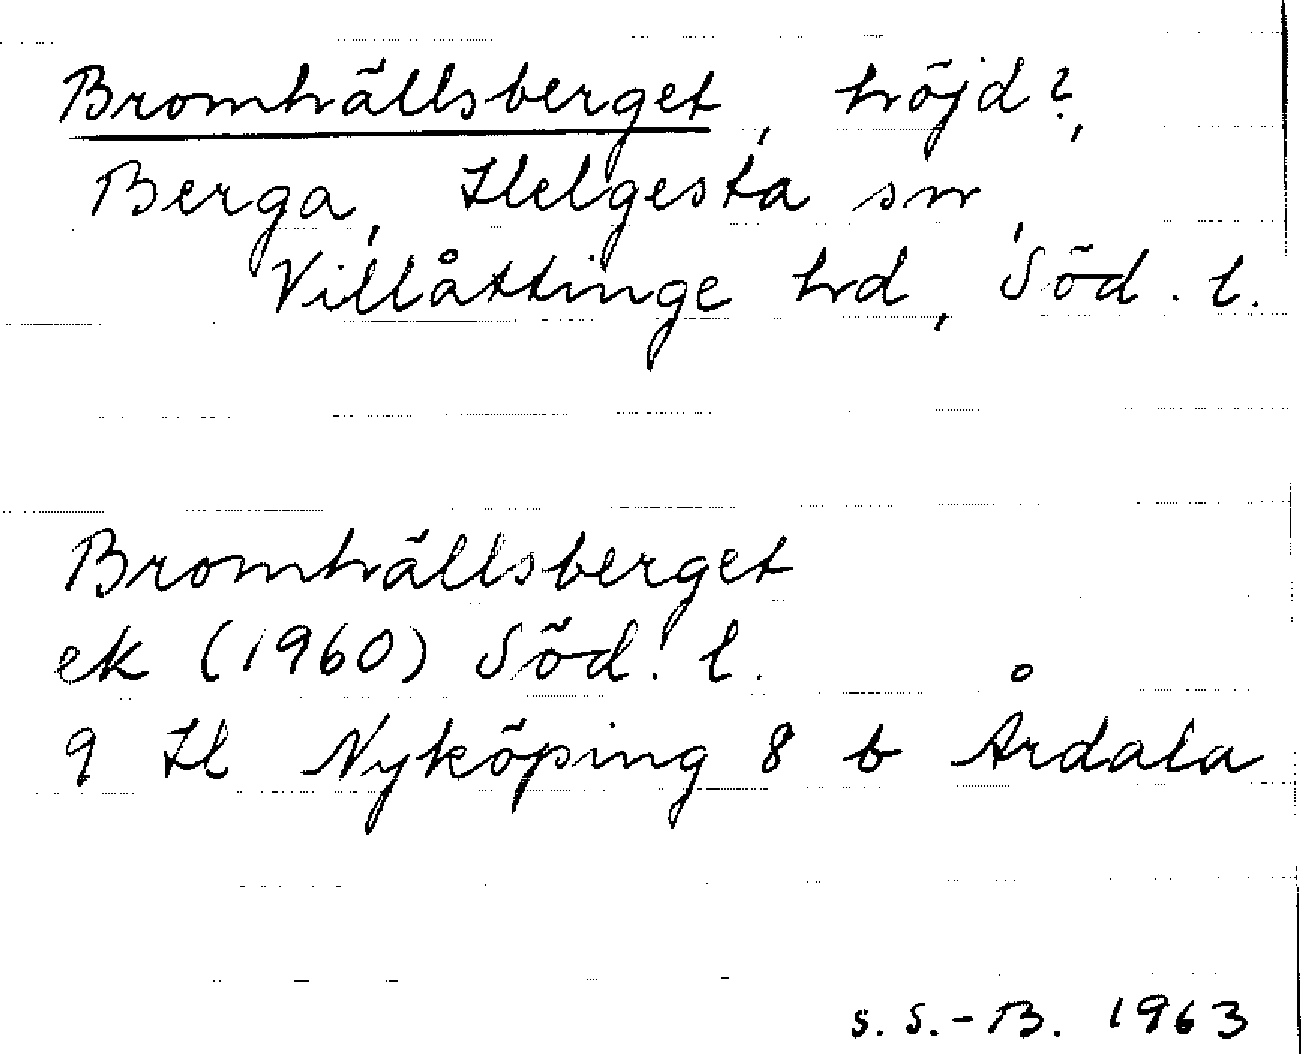 Bromhällsberget, höjd?,
Berga, Helgesta sn,
Villåttinge hd, Söd. l.
Bromhällsberget
ek (1960) Söd. l.
9 H Nyköping 8 b Årdala
S. S.-B. 1963